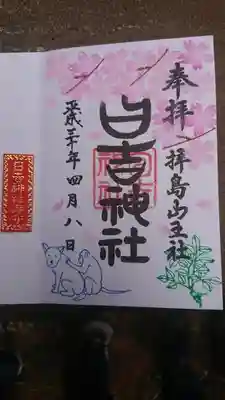 奉拝
拝島山王社
日吉神社
平成三十年四月八日